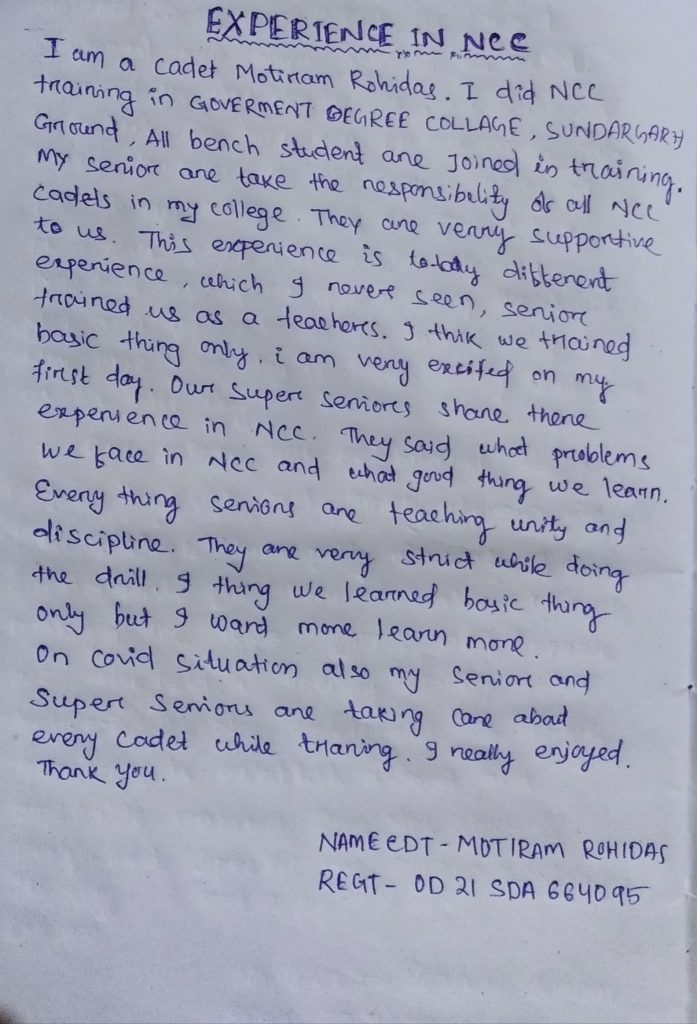 EXPERIENCE IN NCC
I am a cadet Motiram Rohidas. I did NCC
training in GOVERMENT DEGREE COLLAGE, SUNDARGARH
Ground, All bench student are joined in training.
My senior are take the responsibelity of all NCC
cadets in my college. They are verry supportive
to us. This experience is totally different
experience, which I nevere seen, senior
trained us as a teacheres. I thik we trained
basic thing only. i am very excited on my
first day. Our super seniores share there
experience in NCC. They said what problems
we face in NCC and what good thing we learn.
Every thing seniors are teaching unity and
discipline. They are very strict while doing
the drill. I thing we learned basic thing
only but I want more learn more.
On covid situation also my senior and
Super seniors are taking care about
every cadet while traning. I really enjoyed.
Thank you.
NAME CDT - MOTIRAM ROHIDAS
REGT - OD 21 SDA 664095